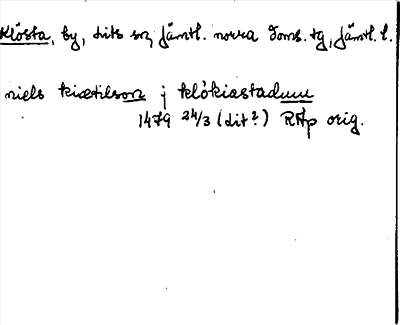 Klösta, by, Lits sn, Jämtl. norra Doms. tg, Jämtl. l.
niels kiætilson j klökiastadum
1479 24/3 (dit?) RAp orig.